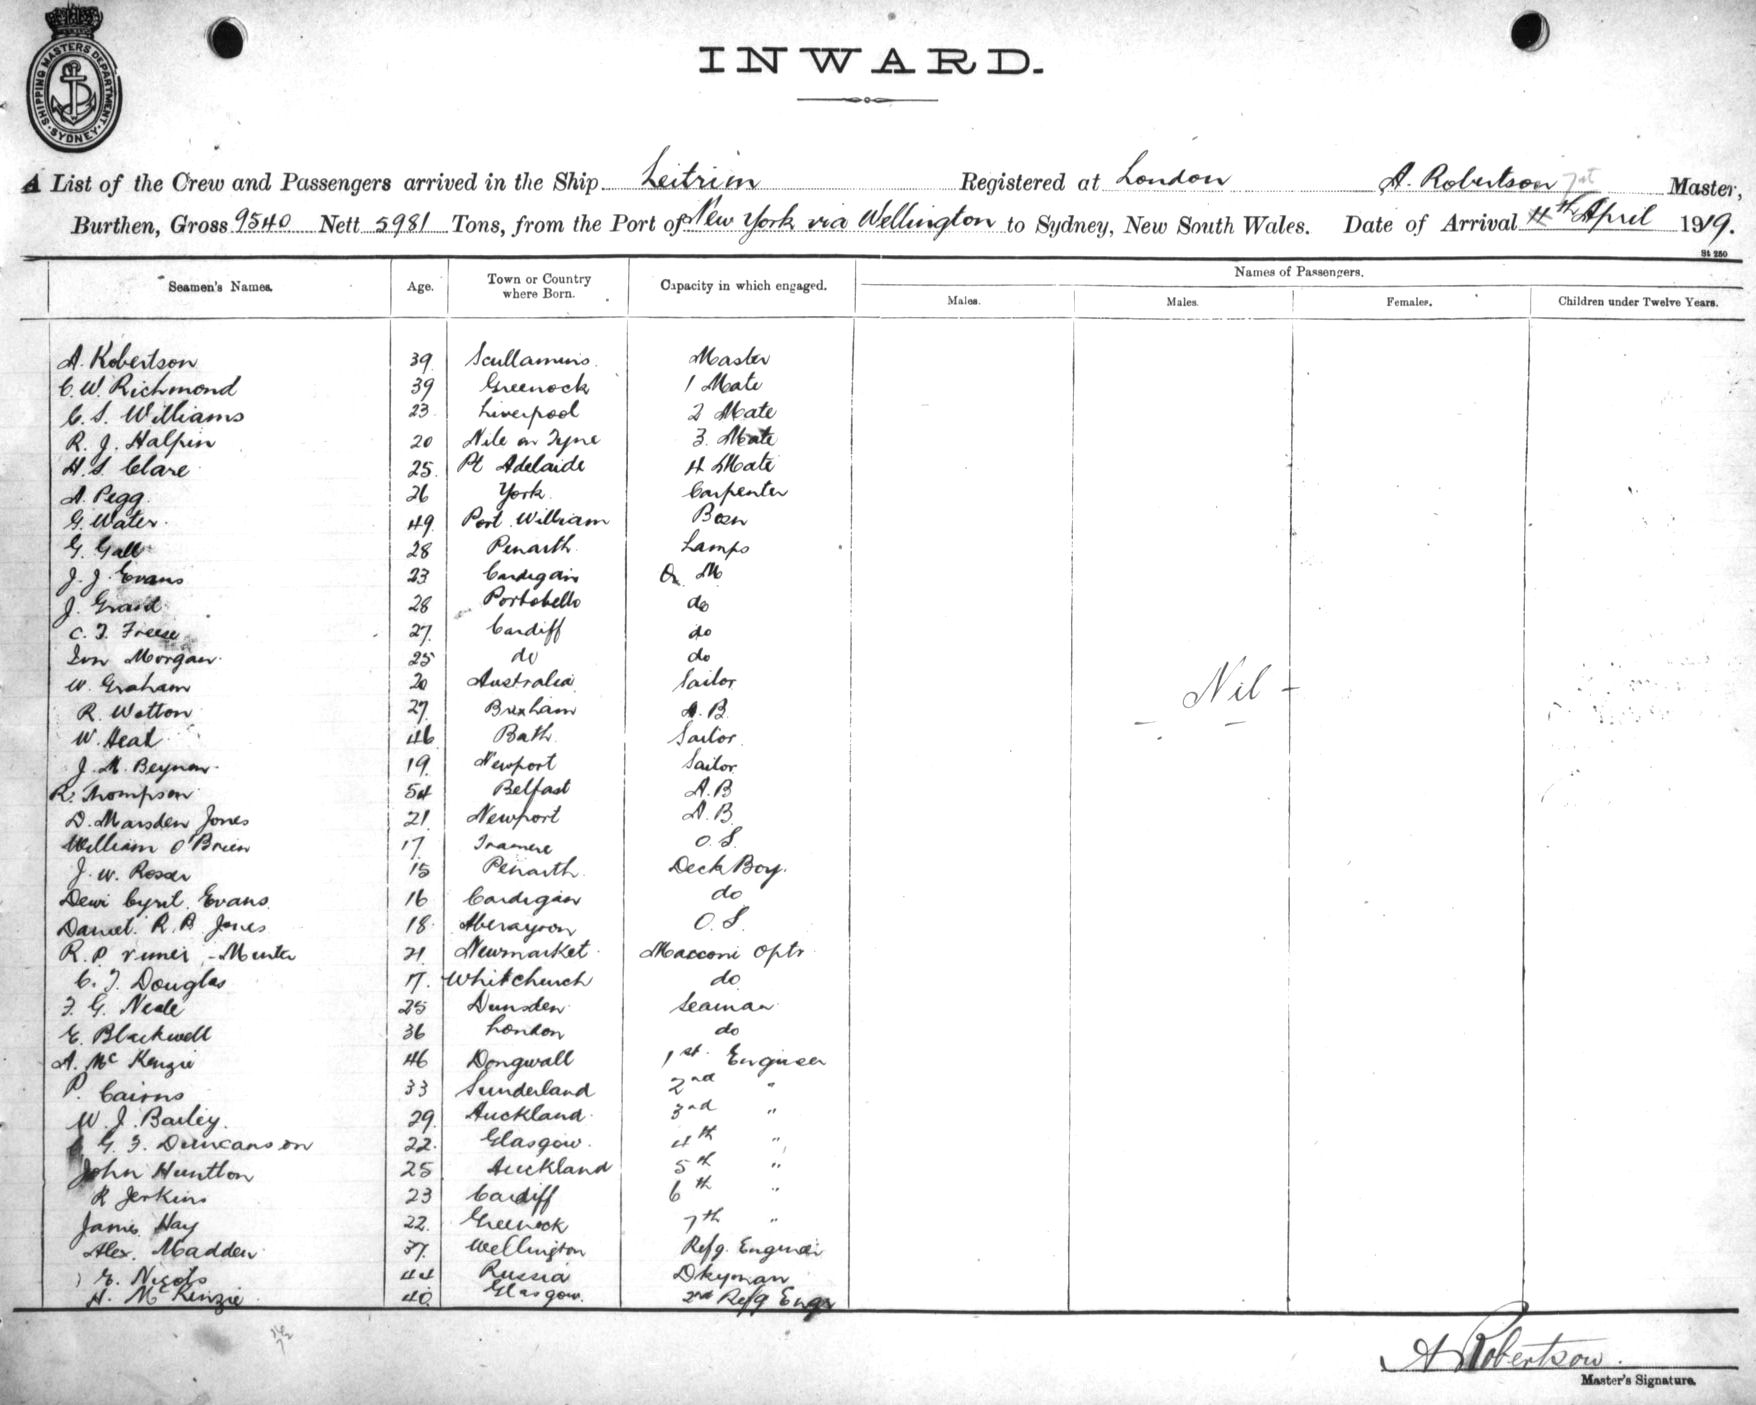 SHIPPING MASTERS DEPARTMENT
· SYDNEY ·
INWARD.
A List of the Crew and Passengers arrived in the Ship Leitrim Registered at London A. Robertson Master,
Burthen, Gross 9540 Nett 5981 Tons, from the Port of New York via Wellington to Sydney, New South Wales. Date of Arrival 4th April 1919.
St 250
Seamen's Names. Age. Town or Country where Born. Capacity in which engaged. Names of Passengers.
Males. Males. Females. Children under Twelve Years.
A. Robertson 39 Master
C. W. Richmond 39 Greenock 1 Mate
C. S. Williams 23 Liverpool 2 Mate
R. J. Halpin 20 on Tyne 3. Mate
H. S. Clare 25 Pt Adelaide 4 Mate
A. Pegg. 26 York Carpenter
G. Water. 49 Port William Bosn
G. Gall 28 Penarth Lamps
J. J. Evans 23 Cardigan Qr M
J. 28 Portobello do
C. T. Freese 27 Cardiff do
Evn Morgan 25 do do
W. Graham 20 Australia Sailor
R. Wotton 27 Brixham A. B.
W. Heal 46 Bath Sailor
J. M. Beynon 19 Newport Sailor
R. Thompson 54 Belfast A. B
D. Marsden Jones 21 Newport A. B.
William O'Brien 17 Tranmere O. S.
J. W. Rosser 15 Penarth Deck Boy.
Dewi Cyril Evans 16 Cardigan do
Daniel R. B Jones 18 Aberayron O. S.
R. P. - Munter 21 Newmarket Macconi Optr
C. J. Douglas 17 Whitchurch do
F. G. Neale 25 Dunsden Seaman
E. Blackwell 36 London do
A. McKenzie 46 Dongwall 1st Engineer
P. Cairns 33 Sunderland 2nd "
W. J. Bailey. 29 Auckland 3rd "
G. F. Duncanson 22 Glasgow 4th "
John Huntton 25 Auckland 5th "
R Jerkins 23 Cardiff 6th "
James Hay 22 Greenock 7th "
Alex. Madden 37 Wellington Refg. Engineer
E. Nicols 44 Russia Dkyman
H. McKenzie 40 Glasgow. 2nd Refg Engr
- Nil -
A Robertson.
Master's Signature.